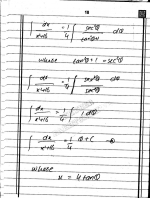 18
∫ dx/(x²+16) = 1/4 ∫ sec²θ/(tan²θ+1) dθ
where tan²θ+1 = sec²θ
∫ dx/(x²+16) = 1/4 ∫ sec²θ/sec²θ dθ
∫ dx/(x²+16) = 1/4 ∫ 1 dθ
∫ dx/(x²+16) = 1/4 θ + C
where
x = 4 tanθ